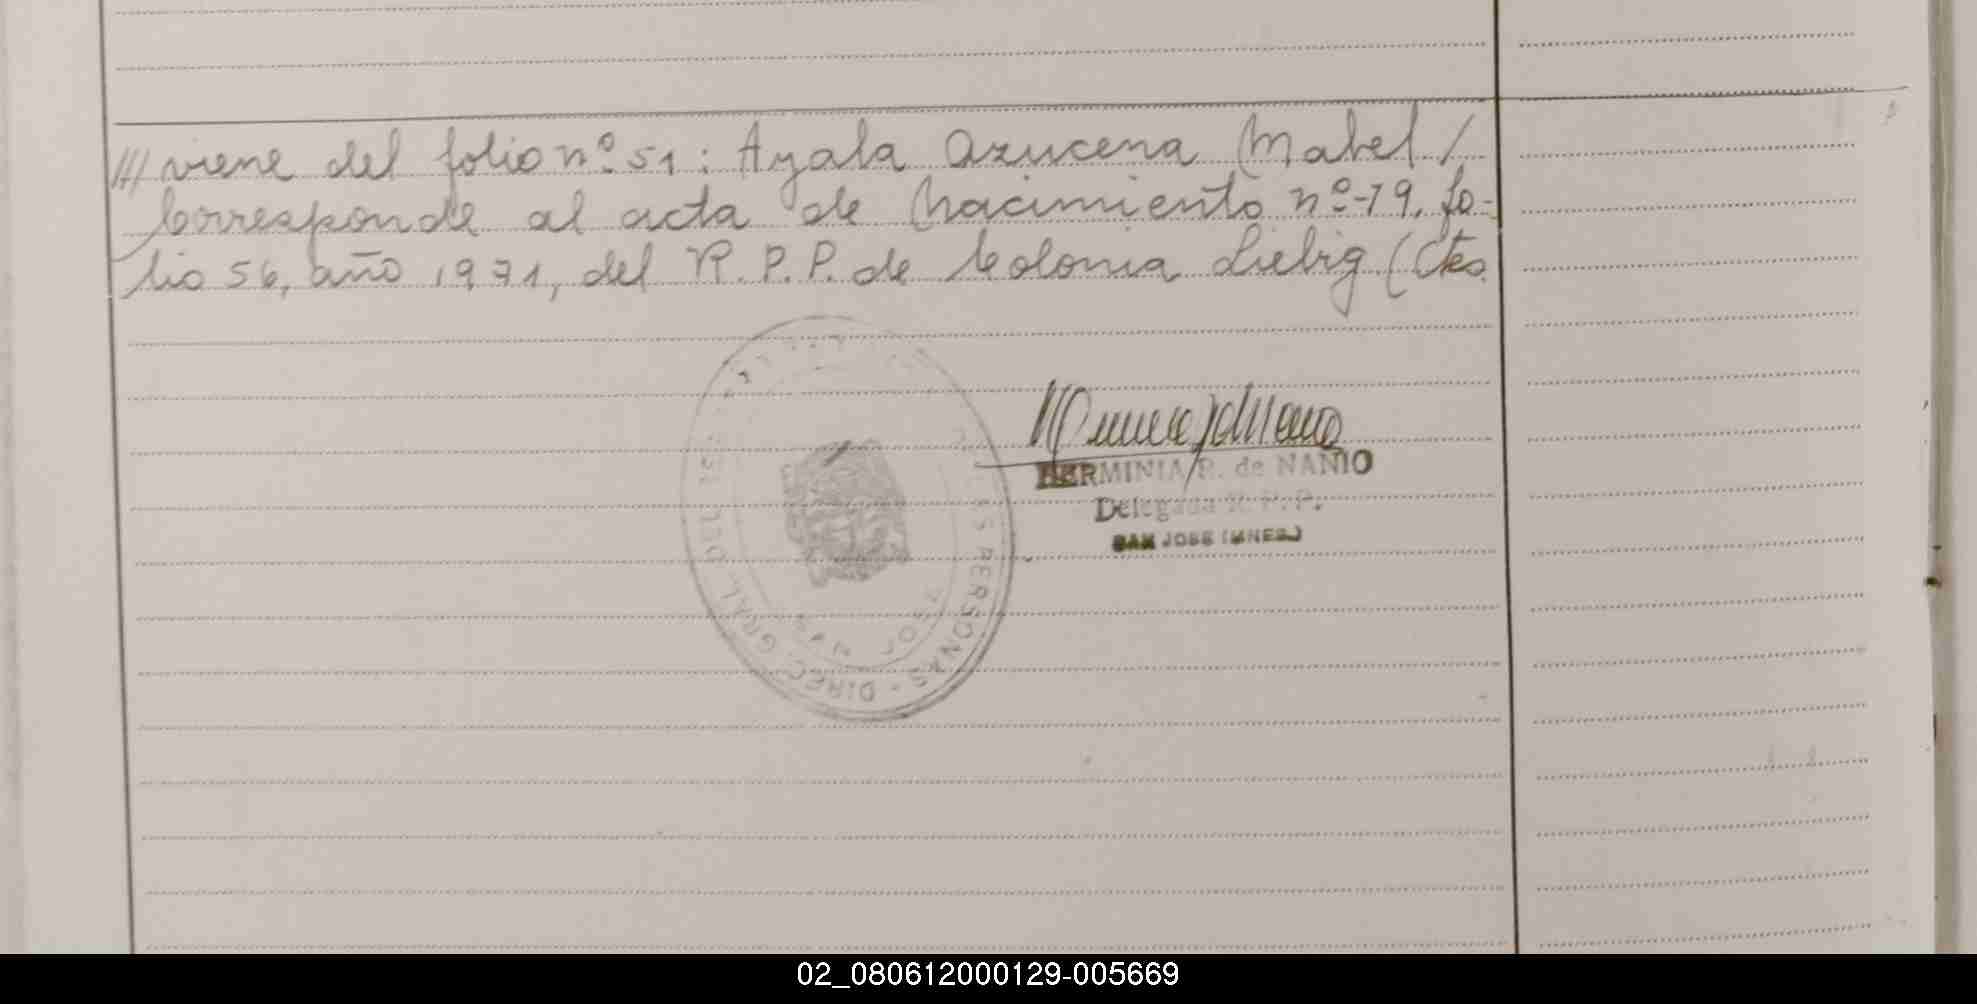 /// viene del folio nº 51: Ayala Azucena Mabel /
Corresponde al acta de Nacimiento nº 79, fo-
lio 56, año 1971, del R.P.P. de Colonia Liebig (Ctes.
HERMINIA R. de NANIO
Delegada R. P. P.
SAN JOSE (MNES.)
PERSONAS - DIREC. GRAL. DEL
02_080612000129-005669